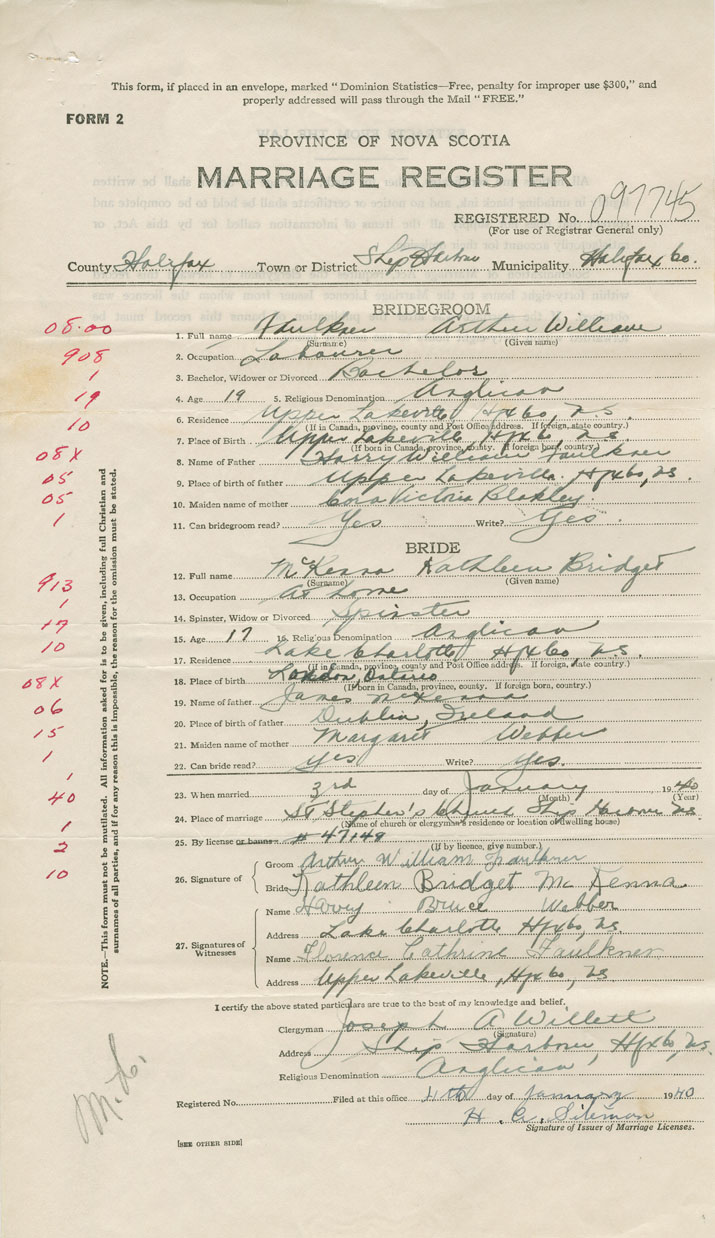 This form, if placed in an envelope, marked "Dominion Statistics—Free, penalty for improper use $300," and
properly addressed will pass through the Mail "FREE."
FORM 2
PROVINCE OF NOVA SCOTIA
MARRIAGE REGISTER
REGISTERED No. 097745
(For use of Registrar General only)
County Halifax Town or District Ship Harbour Municipality Halifax Co.
BRIDEGROOM
08.00
1. Full name Faulkner Arthur William
(Surname) (Given name)
908
2. Occupation Labourer
1
3. Bachelor, Widower or Divorced Bachelor
19
4. Age 19 5. Religious Denomination Anglican
10
6. Residence Upper Lakeville Hfx Co, N.S.
(If in Canada, province, county and Post Office address. If foreign, state country.)
7. Place of Birth Upper Lakeville, Hfx Co, N.S.
(If born in Canada, province, county. If foreign born, country.)
08X
8. Name of Father Harry William Faulkner
05
9. Place of birth of father Upper Lakeville, Hfx Co, NS.
05
10. Maiden name of mother Cora Victoria Blakley
1
11. Can bridegroom read? Yes Write? Yes.
BRIDE
12. Full name McKenna Kathleen Bridget
(Surname) (Given name)
913
13. Occupation At home
1
14. Spinster, Widow or Divorced Spinster
17
15. Age 17 16. Religious Denomination Anglican
10
17. Residence Lake Charlotte Hfx Co, N.S.
(If in Canada, province, county and Post Office address. If foreign, state country.)
08X
18. Place of birth London, Ontario
(If born in Canada, province, county. If foreign born, country.)
06
19. Name of father James McKenna
15
20. Place of birth of father Dublin, Ireland
21. Maiden name of mother Margaret Webber
1
22. Can bride read? Yes Write? Yes.
1
23. When married 3rd day of January 1940
(Month) (Year)
40
24. Place of marriage St Stephen's Church Ship Harbour NS
(Name of church or clergyman's residence or location of dwelling house)
1
25. By license or banns # 47149
(If by licence, give number.)
2
10
26. Signature of
Groom Arthur William Faulkner
Bride Kathleen Bridget McKenna
27. Signatures of Witnesses
Name Harvey Bruce Webber
Address Lake Charlotte Hfx Co, NS.
Name Florence Cathrine Faulkner
Address Upper Lakeville, Hfx Co, NS
I certify the above stated particulars are true to the best of my knowledge and belief.
Clergyman Joseph A Willett
(Signature)
Address Ship Harbour, Hfx Co, NS.
Religious Denomination Anglican
Registered No. Filed at this office 4th day of January 1940
H. G. Siteman
Signature of Issuer of Marriage Licenses.
[SEE OTHER SIDE]
NOTE.—This form must not be mutilated. All information asked for is to be given, including full Christian and
surnames of all parties, and if for any reason this is impossible, the reason for the omission must be stated.